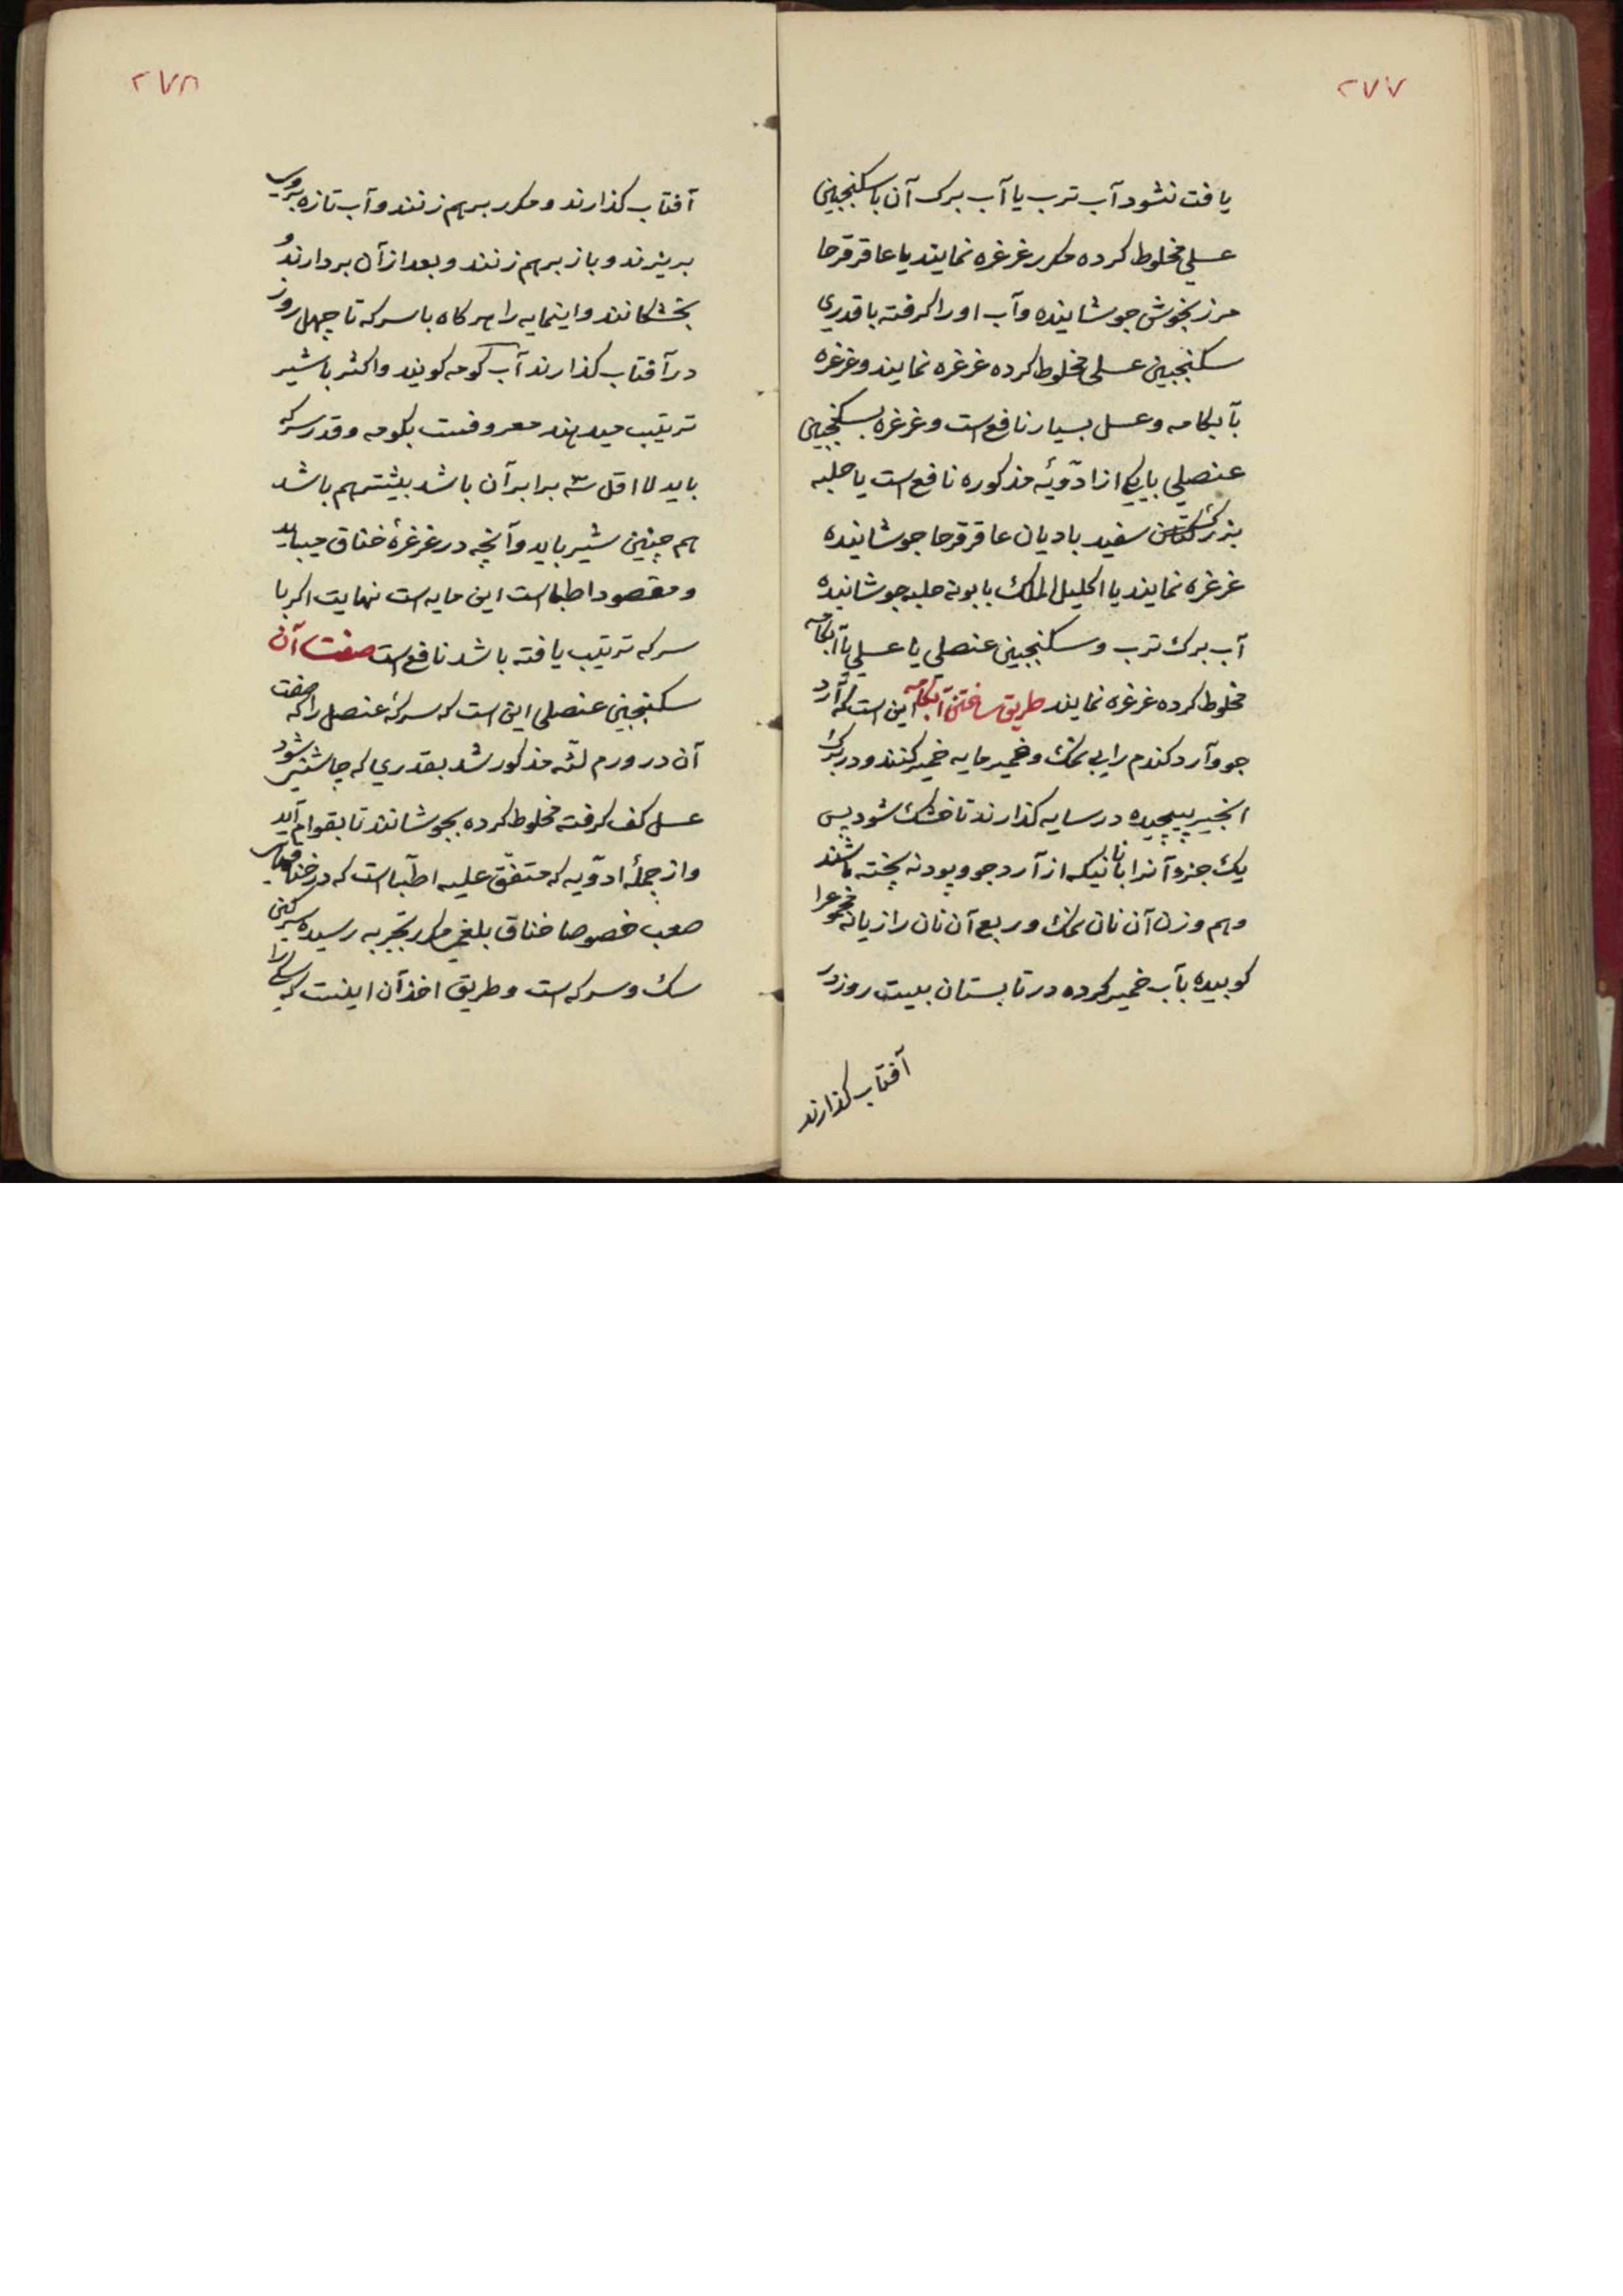 ۲۷۷
یافت نشود آب ترب یا آب برک آن با سکنجبین
عسلی مخلوط کرده مکرر غرغره نمایند یا عاقرقرحا
مرزنجوش جوشانیده و آب او را کرفته با قدری
سکنجبین عسلی مخلوط کرده غرغره نمایند و غرغره
بآبکامه و عسل بسیار نافع است و غرغره بسکنجبین
عنصلی با یکی از ادویهٔ مذکوره نافع است یا حلبه
بزرک سفید بادیان عاقرقرحا جوشانیده
غرغره نمایند یا اکلیل الملک بابونه حلبه جوشانیده
آب برک ترب و سکنجبین عنصلی یا عسلی یا آبکامه
مخلوط کرده غرغره نمایند طریق ساختن آبکامه این است که آرد
جو و آرد کندم را بی نمک و خمیر مایه خمیر کنند و در برک
انجیر پیچیده در سایه کذارند تا خشک شود پس
یک جزو آنرا با نانیکه از آرد جو و پودنه پخته باشند
و هم وزن آن نان نمک و ربع آن نان رازیانه مجموعرا
کوبیده بآب خمیر کرده در تابستان بیست روز در
آفتاب کذارند
۲۷۸
آفتاب کذارند و مکرر برهم زنند و آب تازه بروی
بریزند و باز برهم زنند و بعد از آن بردارند و
بخشکانند و اینمایه را هرکاه با سرکه تا چهل روز
در آفتاب کذارند آب کومه کویند و اکثر با شیر
ترتیب میدهند معروفست بکومه و قدر سرکه
باید لااقل سه برابر آن باشد بیشتر هم باشد
هم چنین شیر باید و آنچه در غرغرهٔ خناق میباید
و مقصود اطبا است این مایه است نهایت اکر با
سرکه ترتیب یافته باشد نافع است صفت آن
سکنجبین عنصلی این است که سرکهٔ عنصل را که صفت
آن در ورم لثه مذکور شد بقدری که چاشنی شود
عسل کف کرفته مخلوط کرده بجوشانند تا بقوام آید
و از جملهٔ ادویه که متفق علیه اطبا است که در خناقهای
صعب خصوصا خناق بلغمی مکرر بتجربه رسیده سرکین
سک و سرکه است و طریق اخذ آن اینست که